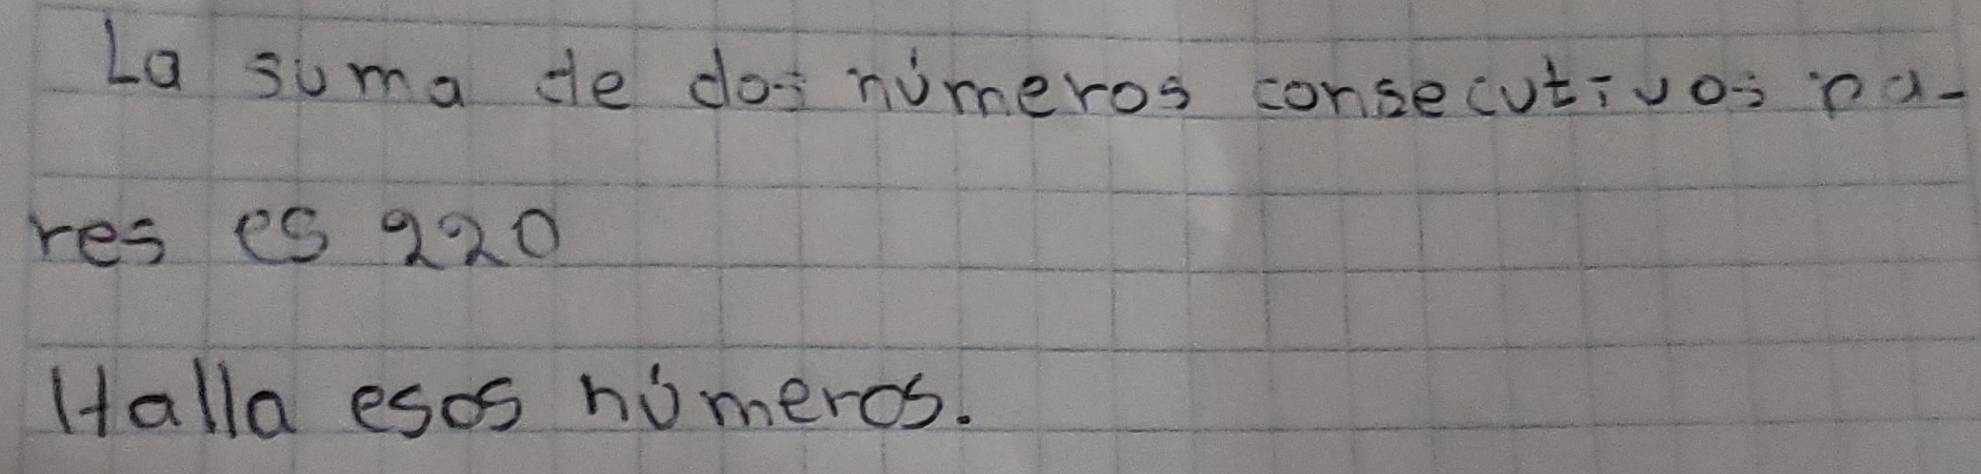 La suma de dos números consecutivos pa-
res es 220
Halla esos números.